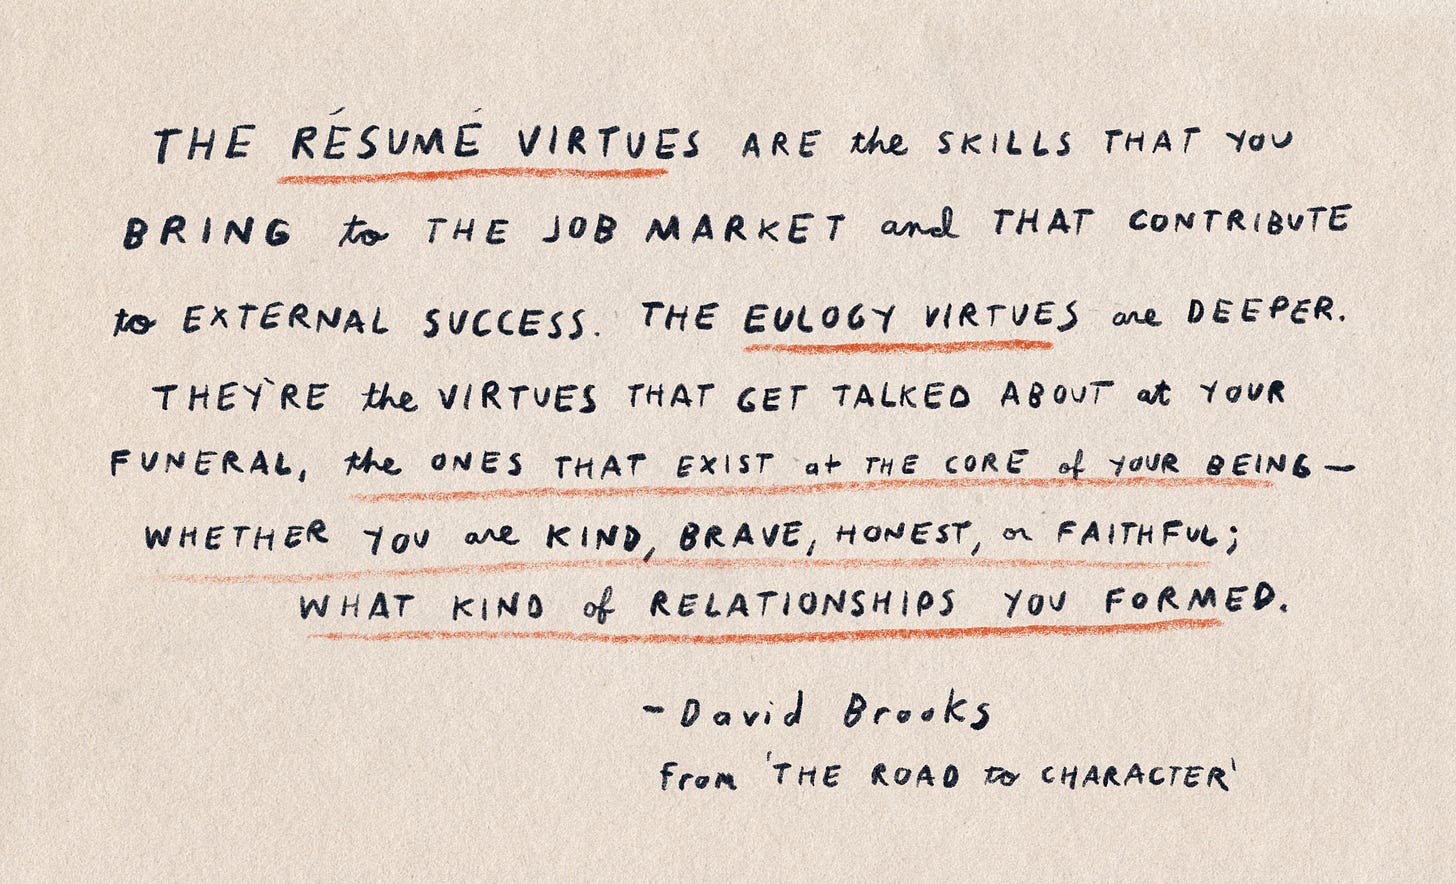 THE RÉSUMÉ VIRTUES ARE the SKILLS THAT YOU
BRING to THE JOB MARKET and THAT CONTRIBUTE
to EXTERNAL SUCCESS. THE EULOGY VIRTUES are DEEPER.
THEY'RE the VIRTUES THAT GET TALKED ABOUT at YOUR
FUNERAL, the ONES THAT EXIST at THE CORE of YOUR BEING—
WHETHER YOU are KIND, BRAVE, HONEST, or FAITHFUL;
WHAT KIND of RELATIONSHIPS YOU FORMED.
-David Brooks
From 'THE ROAD to CHARACTER'